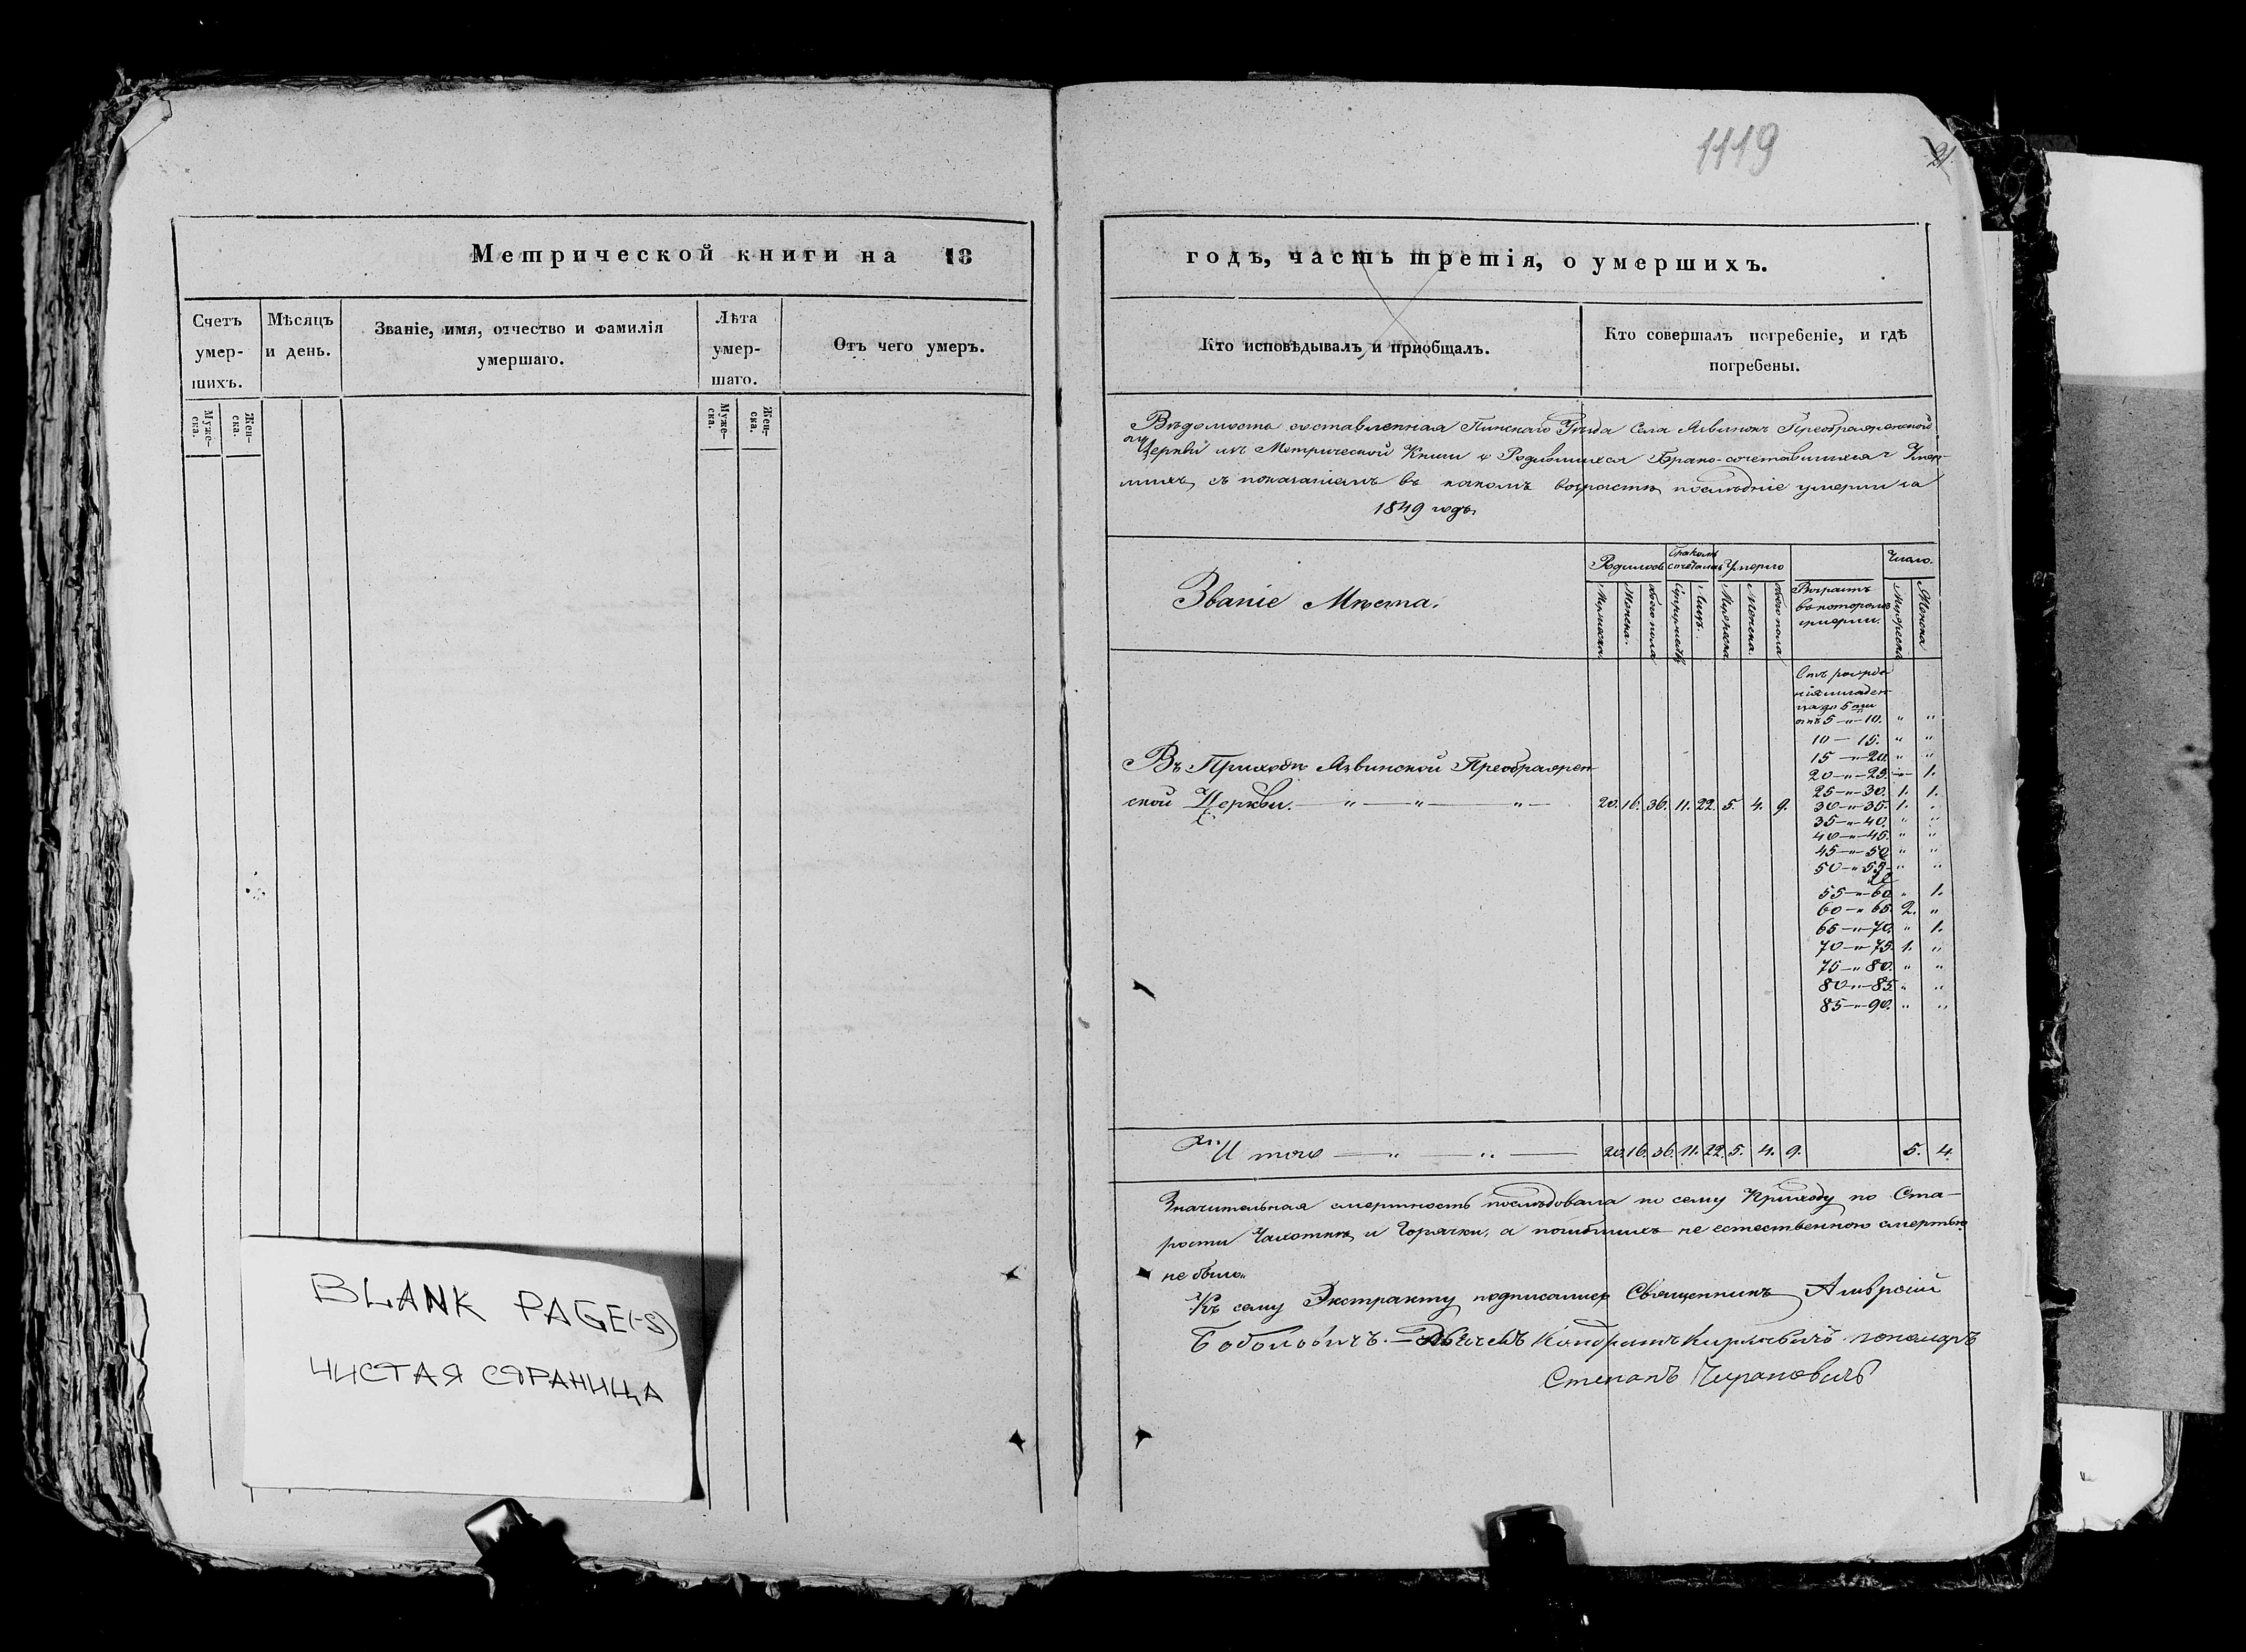 1119
21.
Метрической книги на 18
Счетъ умер-шихъ.
Мѣсяцъ и день.
Званіе, имя, отчество и фамилія умершаго.
Лѣта умер-шаго.
Отъ чего умеръ.
Муже-ска.
Жен-ска.
Муже-ска.
Жен-ска.
BLANK PAGE(-S)
ЧИСТАЯ СТРАНИЦА
годъ, часть третія, о умершихъ.
Кто исповѣдывалъ и пріобщалъ.
Кто совершалъ погребеніе, и гдѣ погребены.
Вѣдомость составленная Пинскаго Уѣзда Села Язвинокъ Преображенской
Церкви изъ Метрической Книги о Родившихся Брако-сочетавшихся и Умер-
шихъ, съ показаніемъ въ какомъ возрастѣ послѣдніе умерли за
1849 годъ.
Званіе Мѣста.
Родилось
Бракомъ сочеталось
Умерло
Число.
Мужеска.
Женска.
обоего пола
Супружествъ
Лицъ.
Мужеска
Женска.
обоего пола
Возрастъ
въ которомъ
умерли.
Мужеска
Женска
Отъ рожде
нія младен
ца до 5 ти
отъ 5 -"- 10. " "
10 — 15. " "
15 -"- 20. " "
20 -"- 25. -"- 1.
25 -"- 30. 1. 1.
30 -"- 35. 1. "
35 -"- 40. " "
40 -"- 45. " "
45 -"- 50 " "
50 -"- 55. " "
55 -"- 60 " 1.
60 -"- 65. 2. "
65 -"- 70. " 1.
70 -"- 75. 1. "
75 -"- 80. " "
80 -"- 85. " "
85 -"- 90. " "
Въ Приходѣ Язвинской Преображен
ской Церкви. — " — " — " — 20. 16. 36. 11. 22. 5. 4. 9.
Итого — " — " — 20. 16. 36. 11. 22. 5. 4. 9. 5. 4.
Значительная смертность послѣдовала по сему Приходу по Ста-
рости Чахотки и Горячки, а погибшихъ не естественною смертью
не было.
Къ сему Экстракту подписались Священникъ Амвросій
Кондратъ Кирлевичъ пономарь
Степанъ